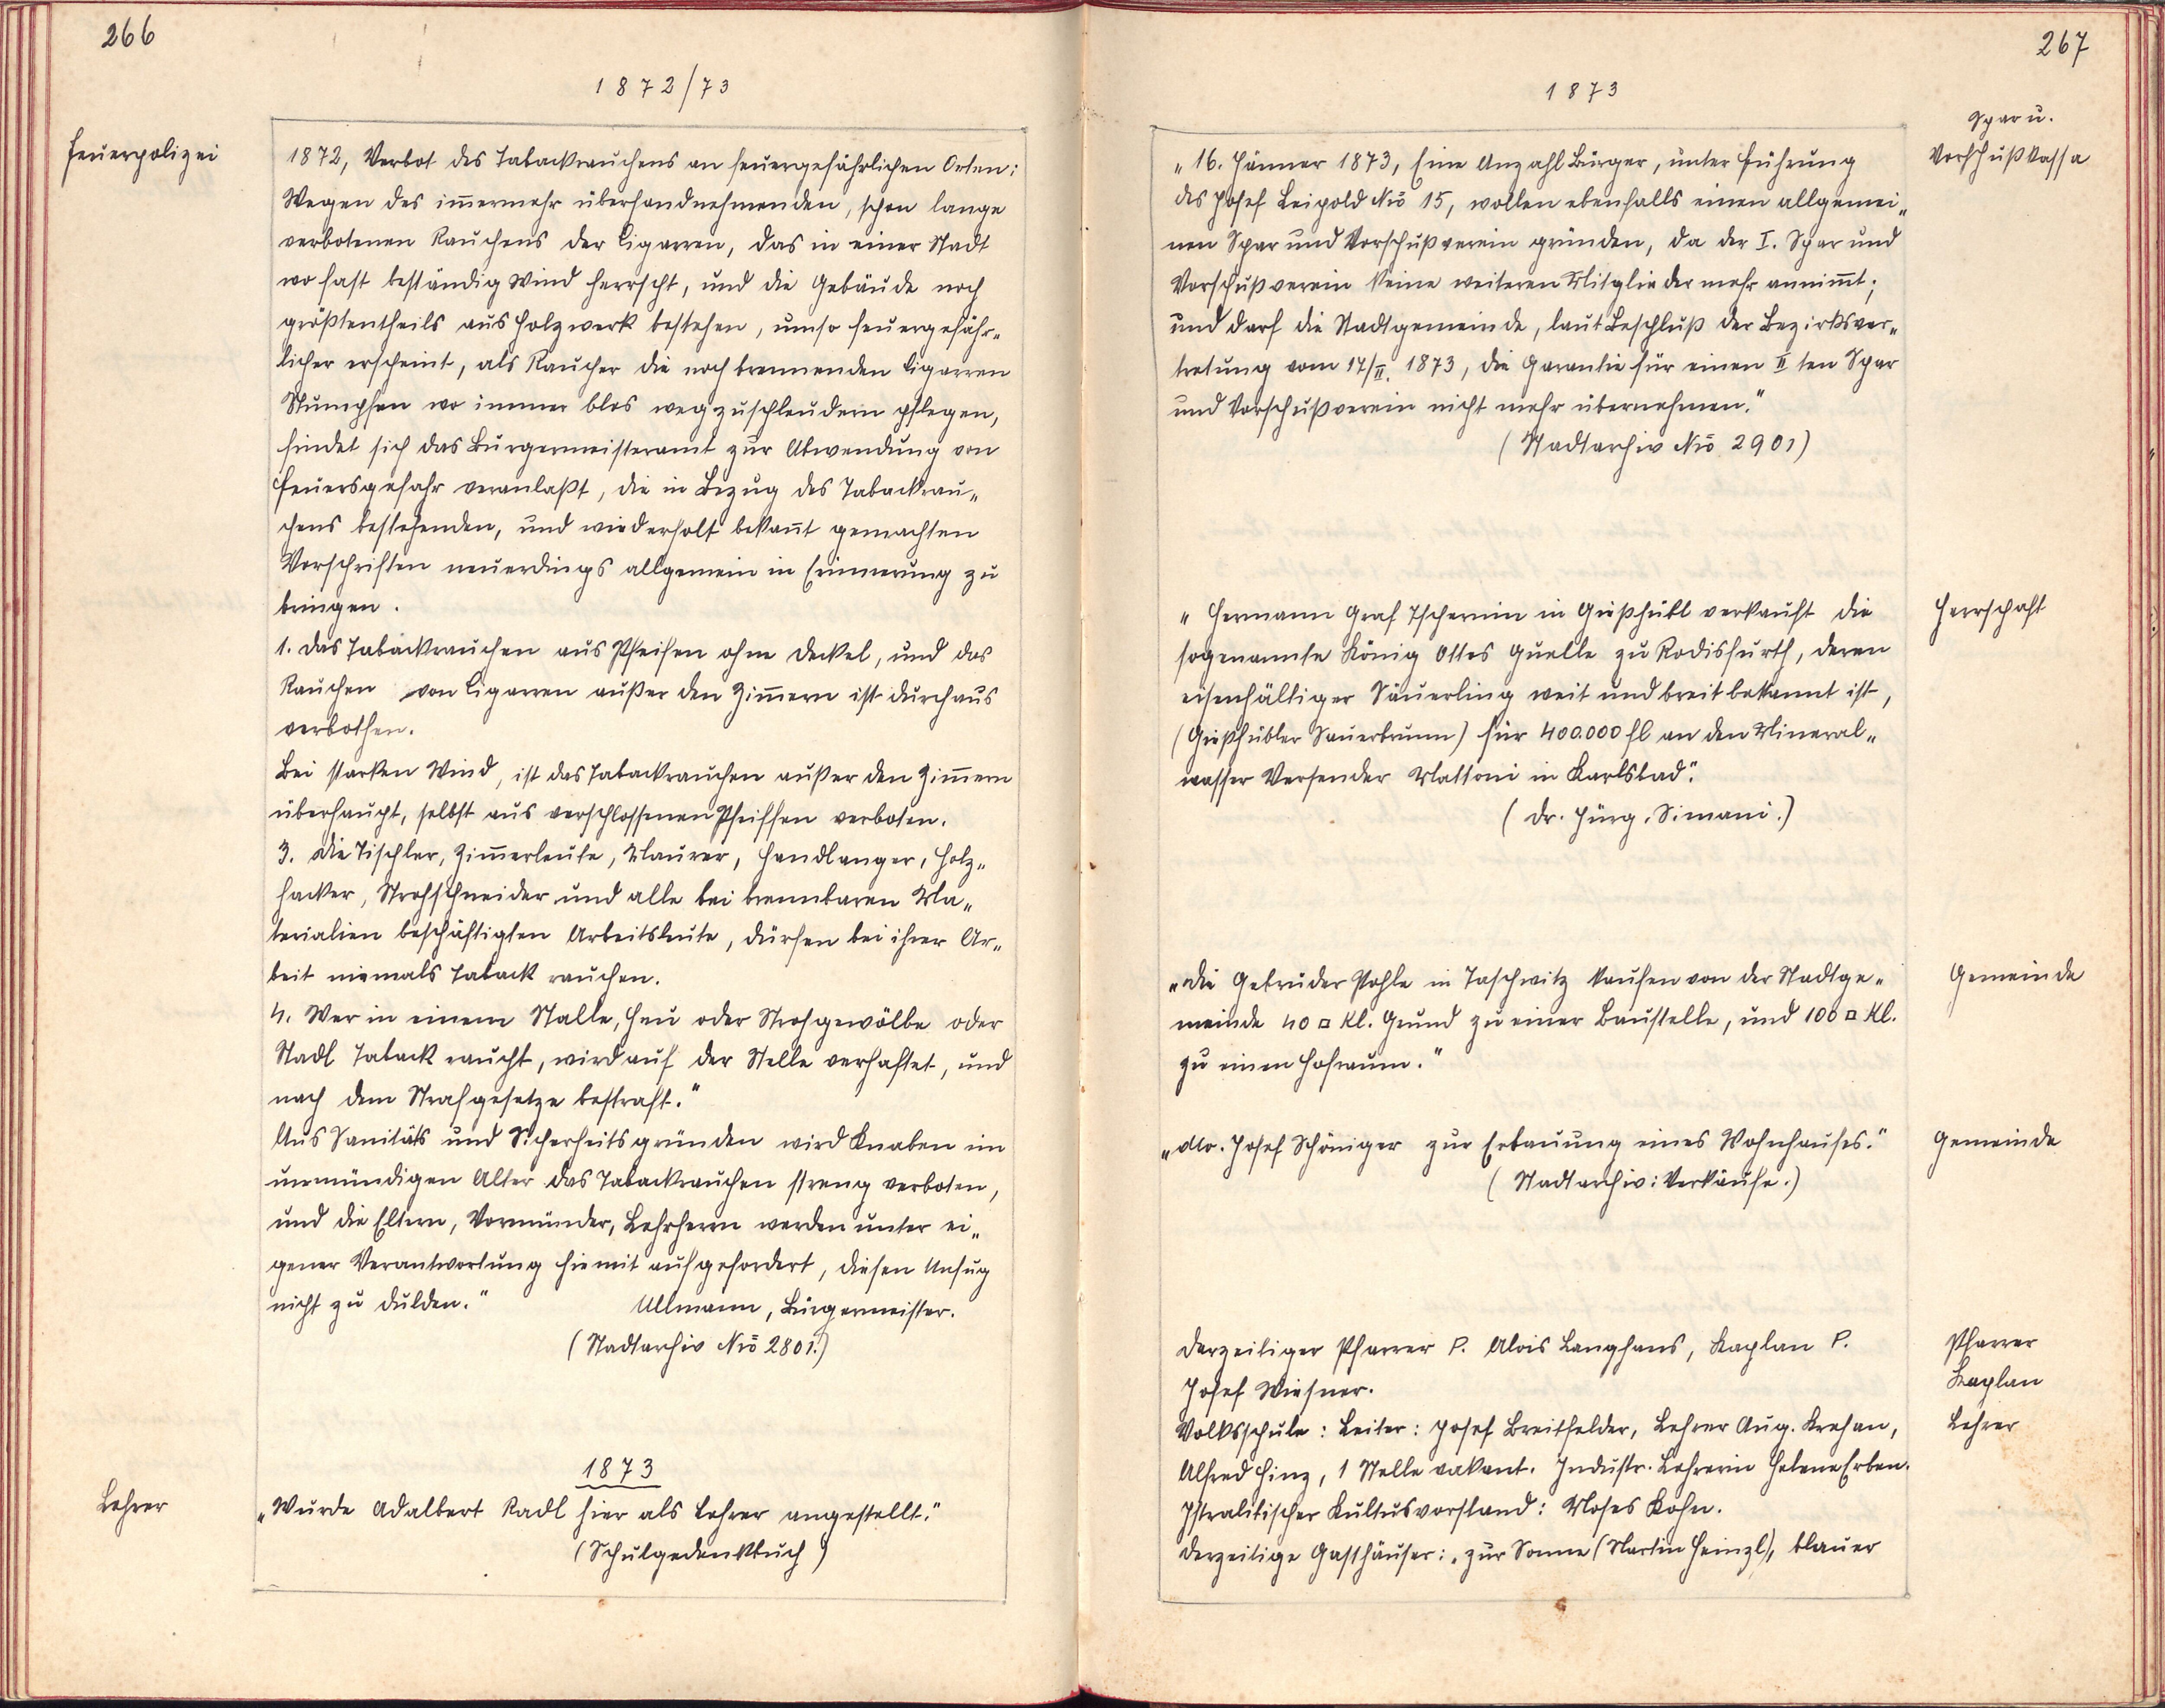 266
1872/73
Feuerpolizei
1872, Verbot des Tabackrauchens an feuergefährlichen Orten:
Wegen des im̅ermehr überhandnehmenden, schon lange
verbotenen Rauchens der Cigarren, das in einer Stadt
wo fast beständig Wind herrscht, und die Gebäude noch
größtentheils aus Holzwerk bestehen, umso feuergefähr„
licher erscheint, als Raucher die noch brennenden Cigarren
Stumpfen wo immer blos wegzuschleudern pflegen,
findet sich das Bürgermeisteramt zur Abwendung von
Feuersgefahr veranlaßt, die in Bezug des Tabackrau„
chens bestehenden, und wiederholt bekan̅t gemachten
Vorschriften neuerdings allgemein in Erinnerung zu
bringen.
1. Das Tabackrauchen aus Pfeifen ohne Deckel, und das
Rauchen von Cigarren außer den Zim̅ern ist durchaus
verbothen.
Bei starken Wind, ist das Tabackrauchen außer den Zim̅ern
überhaupt, selbst aus verschlossenen Pfeiffen verboten.
3. Die Tischler, Zim̅erleute, Maurer, Handlanger, Holz„
hacker, Strohschneider und alle bei brennbaren Ma„
terialien beschäftigten Arbeitsleute, dürfen bei ihrer Ar„
beit niemals Taback rauchen.
4. Wer in einem Stalle, Heu oder Strohgewölbe oder
Stadl Taback raucht, wird auf der Stelle verhaftet, und
nach dem Strafgesetze bestraft."
Aus Sanitäts und Sicherheitsgründen wird Knaben im
unmündigen Alter das Tabackrauchen streng verboten,
und die Eltern, Vormünder, Lehrherrn werden unter ei„
gener Verantwortung hiemit aufgefordert, diesen Unfug
nicht zu dulden." Ullmann, Bürgermeister.
(Stadtarchiv Nro 2801.)
1873
Lehrer
„Wurde Adalbert Radl hier als Lehrer angestellt."
(Schulgedenkbuch)
267
1873
Spar u.
Vorschußkassa
„16. Jänner 1873, Eine Anzahl Bürger, unter Führung
des Josef Leipold Nro 15, wollen ebenfalls einen allgemei„
nen Spar und Vorschußverein gründen, da der I. Spar und
Vorschußverein keine weiteren Mitglieder mehr annim̅t;
und darf die Stadtgemeinde, laut Beschluß der Bezirksver„
tretung vom 17/II. 1873, die Garantie für einen II ten Spar
und Vorschußverein nicht mehr übernehmen."
(Stadtarchiv Nro 2901)
Herrschaft
„Hermann Graf Tschernin in Gießhübl verkauft die
sogenannte König Ottos Quelle zu Rodisfurth, deren
eisenhältiger Säuerling weit und breit bekannt ist,
(Gießhübler Sauerbrunn) für 400.000 fl an den Mineral„
wasser Versender Mattoni in Karlsbad."
(Dr. Hürg. Simani.)
Gemeinde
„Die Gebrüder Pohle in Taschwitz kaufen von der Stadtge„
meinde 40 □ Kl. Grund zu einer Baustelle, und 100 □ Kl.
zu einen Hofraum."
Gemeinde
„Mo. Josef Schöniger zur Erbauung eines Wohnhauses."
(Stadtarchiv: Verkäufe.)
Pfarrer
Kaplan
Lehrer
Derzeitiger Pfarrer P. Alois Langhans, Kaplan P.
Josef Wiesner.
Volksschule: Leiter: Josef Breitfelder, Lehrer Aug. Krehan,
Alfred Hinz, 1 Stelle vakant. Industr. Lehrerin Helene Erben.
Isralitischer Kultusvorstand: Moses Kohn.
Derzeitige Gasthäuser: „zur Sonne (Martin Heinzl), blauer